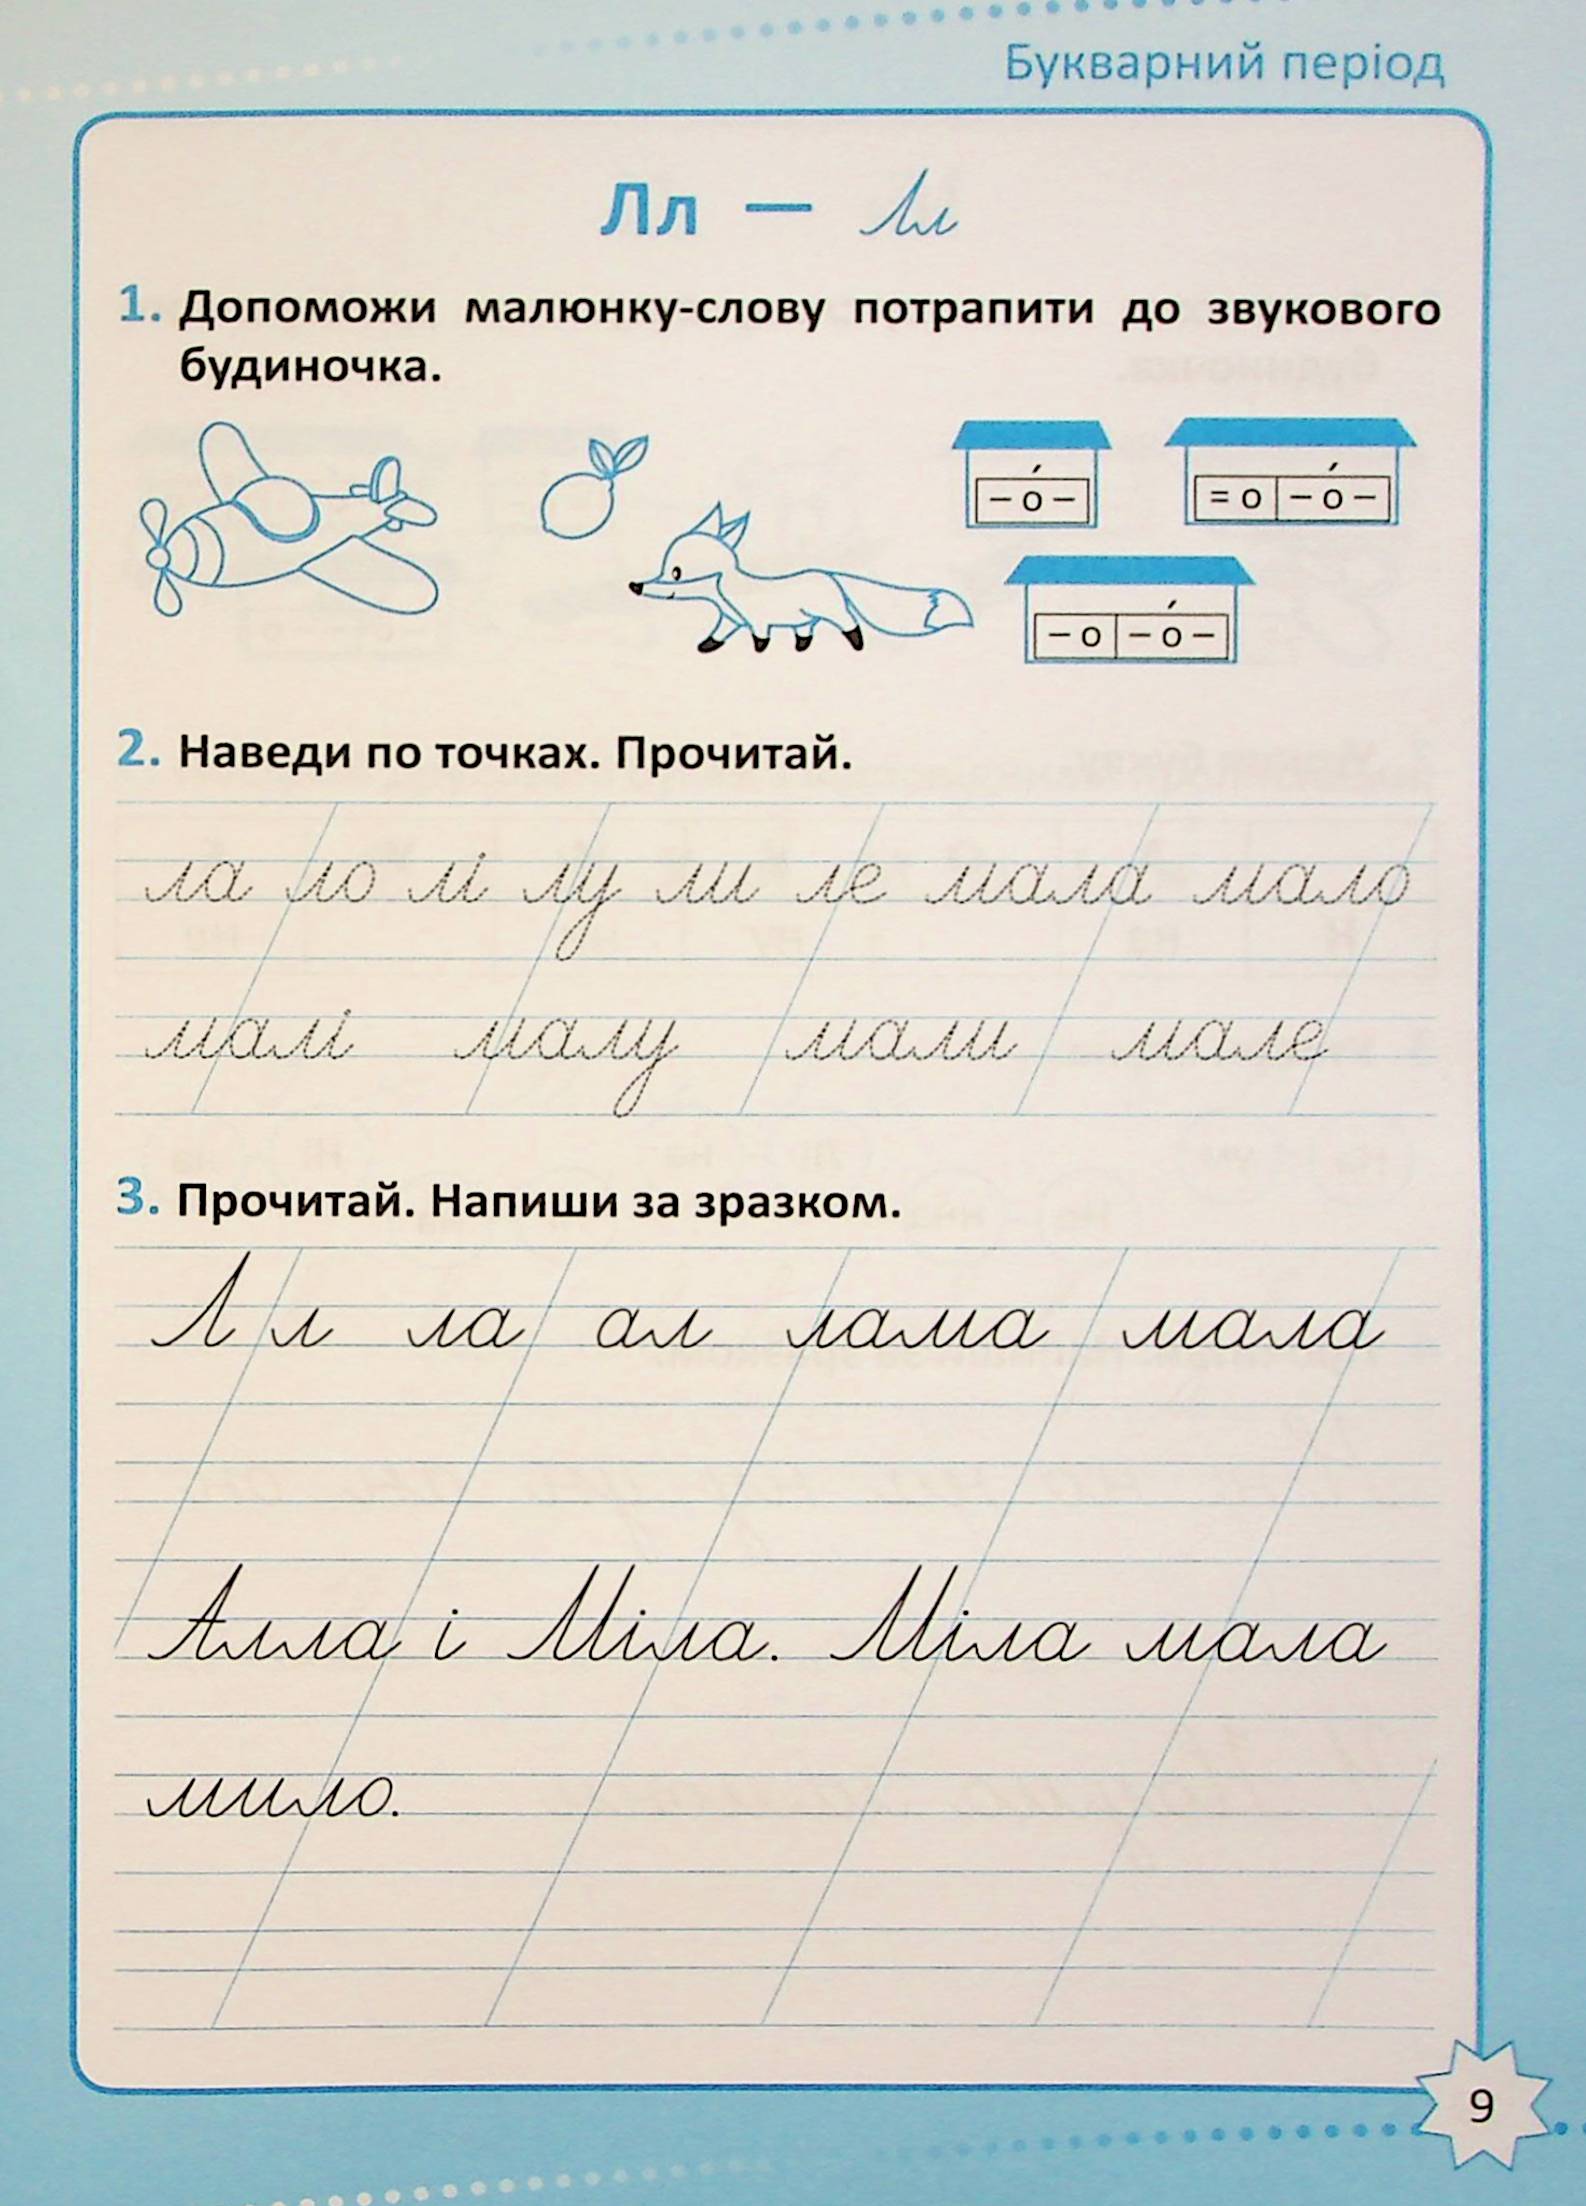 Букварний період
Лл — Лл
1. Допоможи малюнку-слову потрапити до звукового
будиночка.
– о́ –
= о – о́ –
– о – о́ –
2. Наведи по точках. Прочитай.
ла ло лі лу ли ле мала мало
малі малу мали мале
3. Прочитай. Напиши за зразком.
Л л ла ал лама мала
Алла і Міла. Міла мала
мило.
9